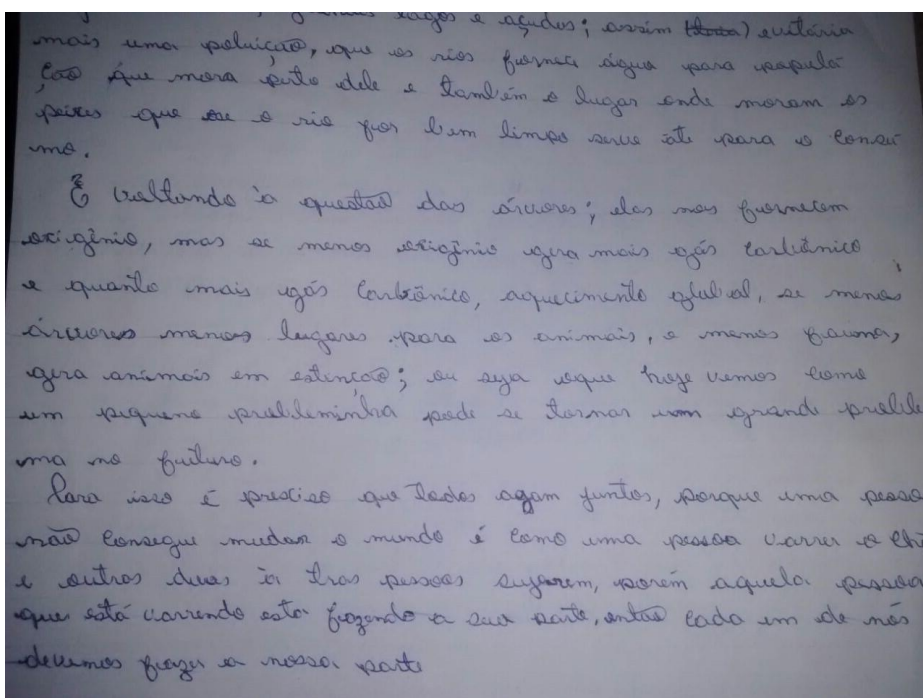 lagos e açudes; assim (troca) evitária
mais uma poluição, que os rios fornece água para populá
ção que mora perto dele e também o lugar onde moram os
peixes que se o rio for bem limpo serve até para o consu
mo.
E voltando à questão das árvores; elas nos fornecem
oxigênio, mas se menos oxigênio gera mais gás carbônico
e quanto mais gás carbônico, aquecimento glubal, se menos
árvores menos lugares para os animais, e menos fauna,
gera animais em estinção; ou seja oque hoje vemos como
um piqueno probleminha pode se tornar um grande proble
ma no futuro.
Para isso é preciso que todos agam juntos, porque uma pessoa
não consegue mudar o mundo é como uma pessoa varrer o chã
e outros duas à tras pessoas sujarem, porém aquela pessoa
que está varrendo esta fazendo a sua parte, então cada um de nós
devemos fazer a nossa parte